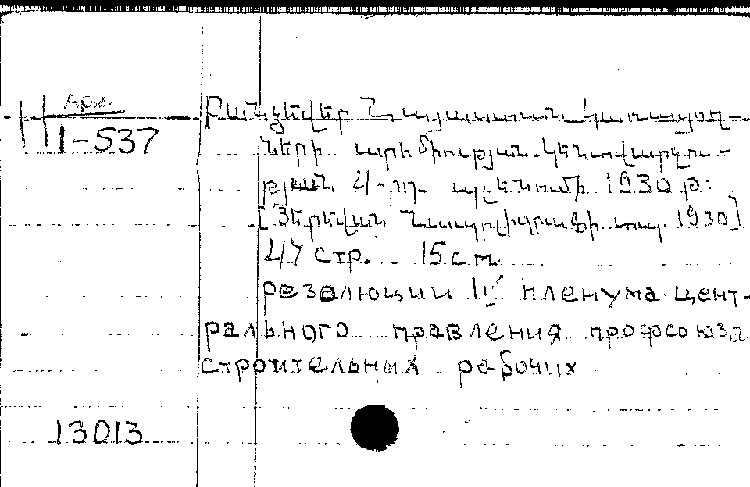 Арм.
II-537
Բանաձեվեր Հայաստանի կառուցող-
ների արհմիության կենտվարչու-
թյան 4-րդ պլենումի 1930 թ:
[Յերեվան Հապոլիգրաֆի տպ. 1930]
47 стр. 15 см.
резолюции IV пленума цент-
рального правления профсоюза
строительных рабочих
13013